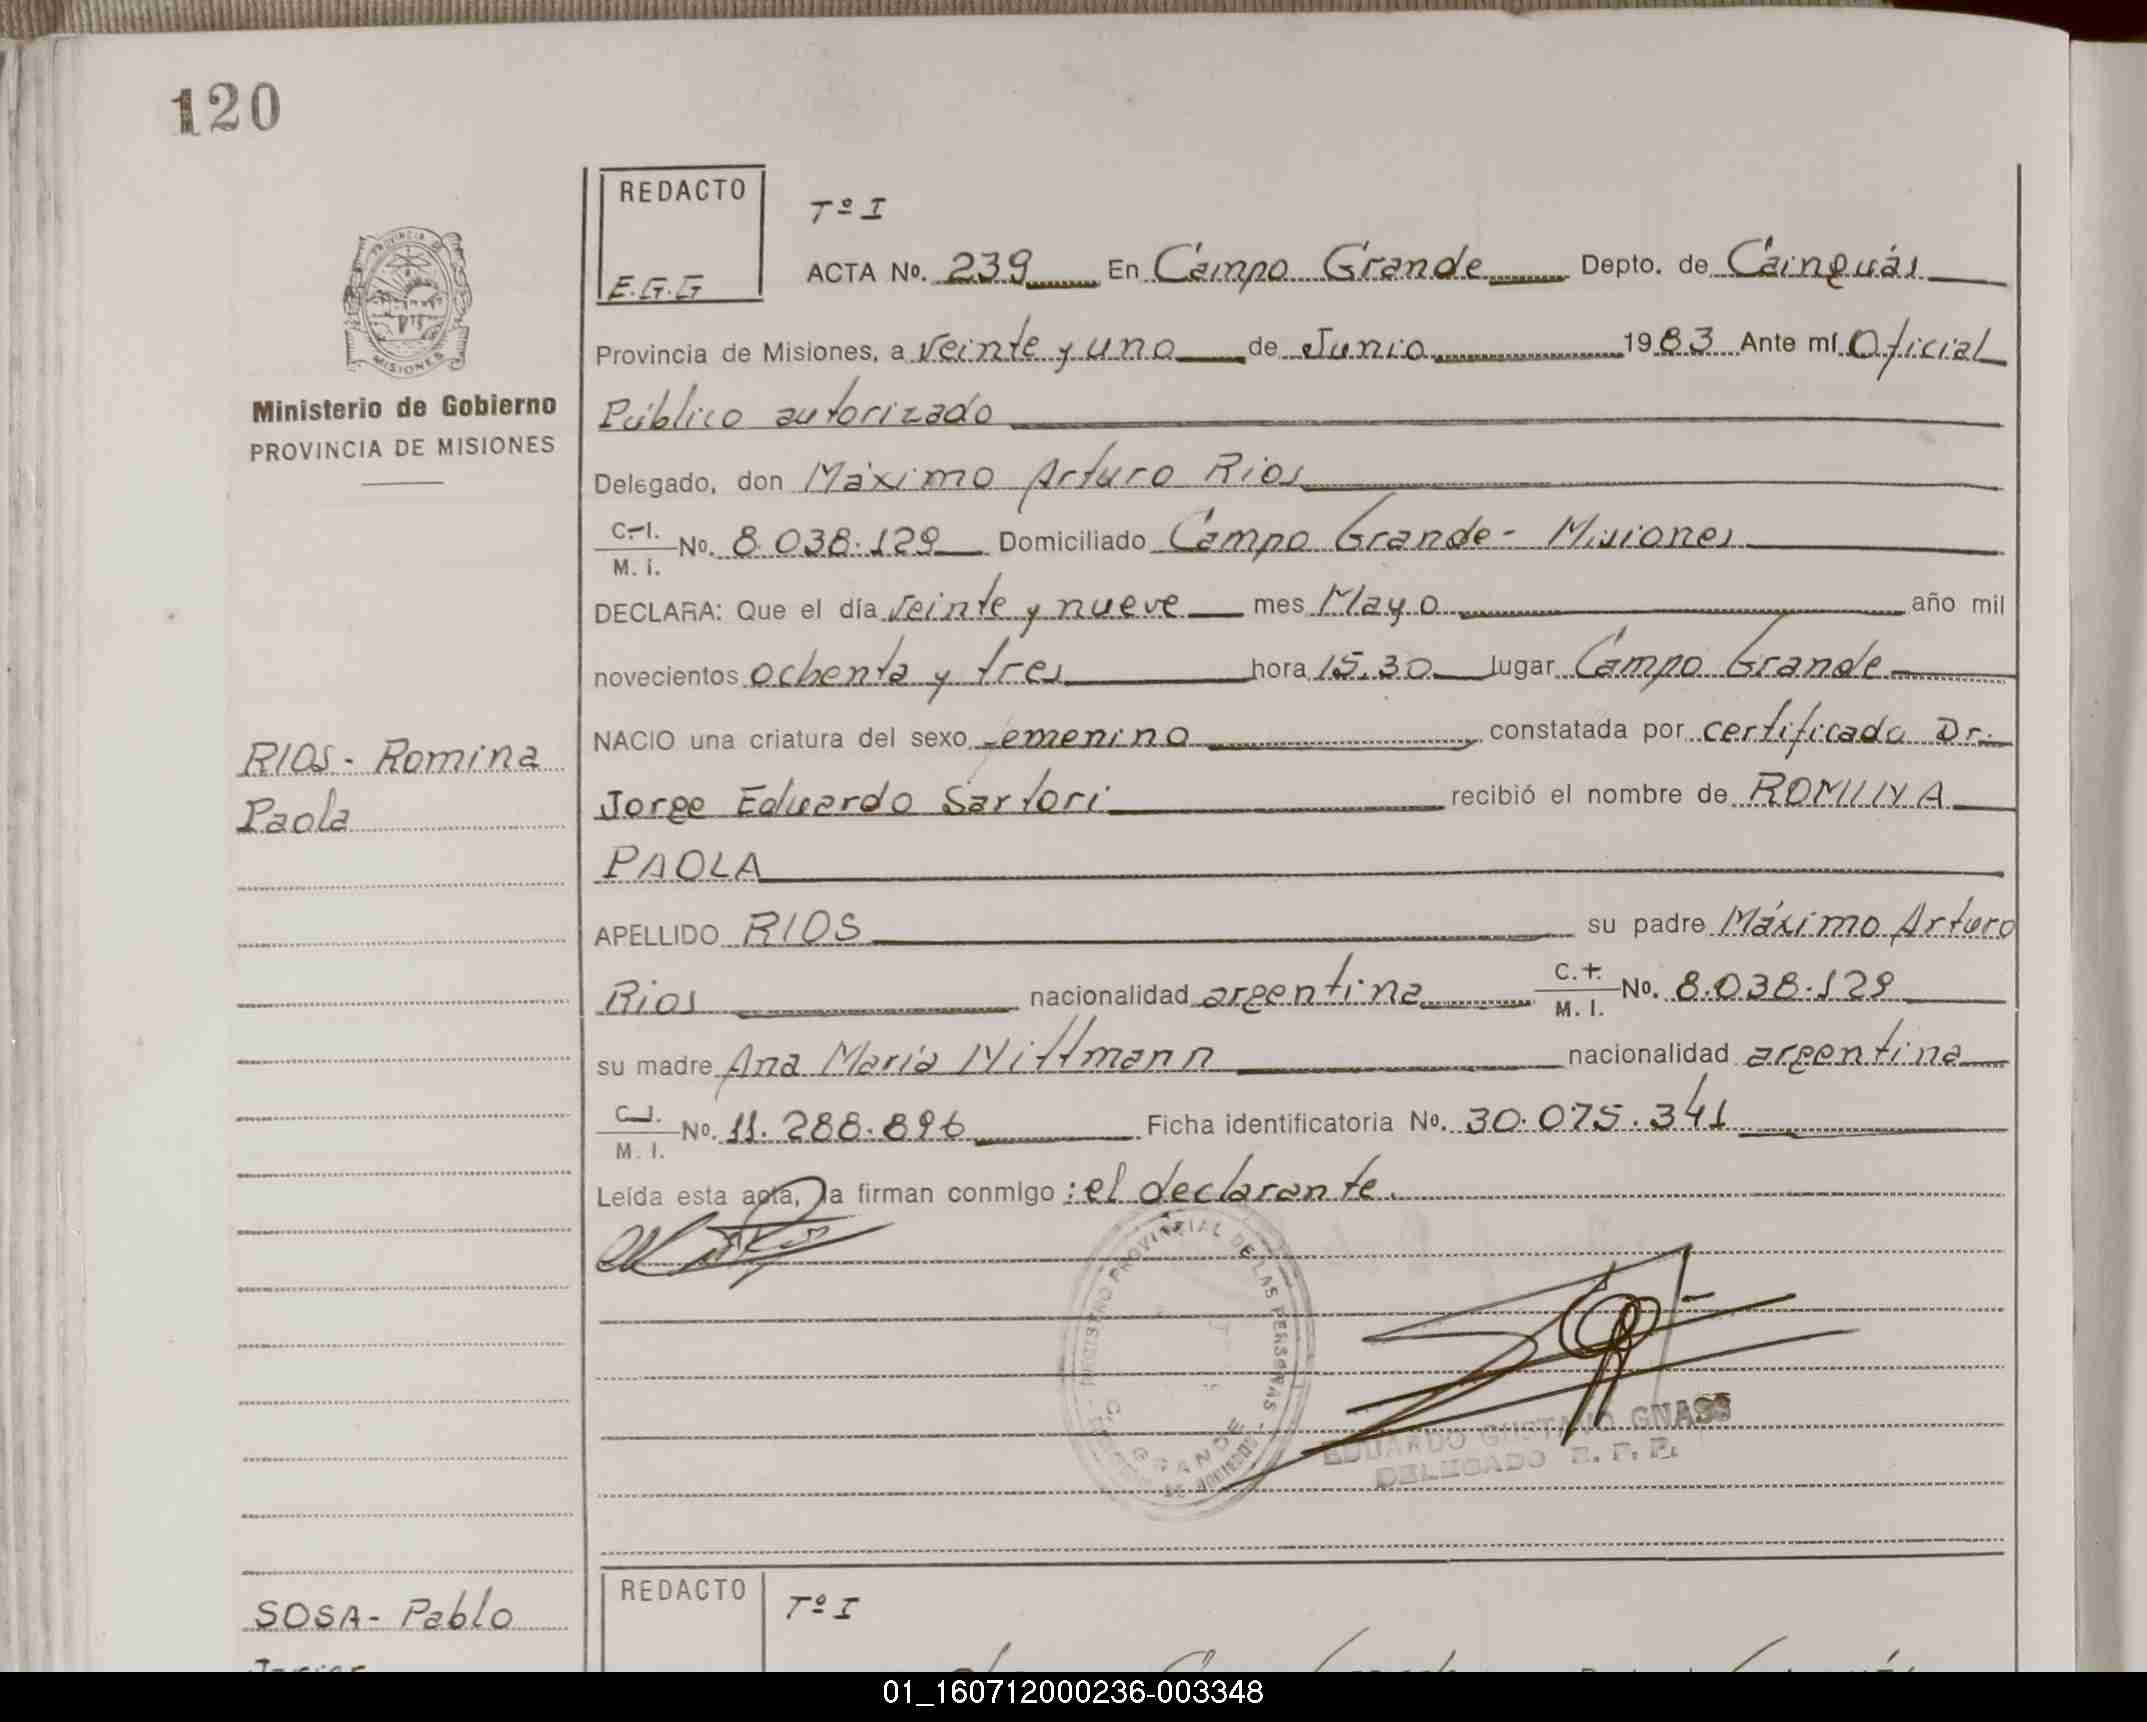 120
REDACTO
E.G.G
Tº I
ACTA Nº. 239 En Campo Grande Depto. de Cainguás
PROVINCIA DE
MISIONES
Provincia de Misiones, a veinte y uno de Junio 1983 Ante mí Oficial
Ministerio de Gobierno
PROVINCIA DE MISIONES
Público autorizado
Delegado, don Máximo Arturo Rios
C.I.
M. I.
Nº. 8.038.129 Domiciliado Campo Grande - Misiones
DECLARA: Que el día veinte y nueve mes Mayo año mil
novecientos ochenta y tres hora 15.30 lugar Campo Grande
NACIO una criatura del sexo femenino constatada por certificado Dr.
RIOS - Romina
Paola
Jorge Eduardo Sartori recibió el nombre de ROMINA
PAOLA
APELLIDO RIOS su padre Máximo Arturo
Rios nacionalidad argentina C.I.
M. I. Nº. 8.038.129
su madre Ana María Wittmann nacionalidad argentina
C.I.
M. I.
Nº. 11.288.896 Ficha identificatoria Nº. 30.075.341
Leída esta acta, la firman conmigo: el declarante.
REGISTRO PROVINCIAL DE LAS PERSONAS
GRANDE
EDUARDO GUSTAVO GNASS
DELEGADO R. P. P.
REDACTO
Tº I
SOSA - Pablo